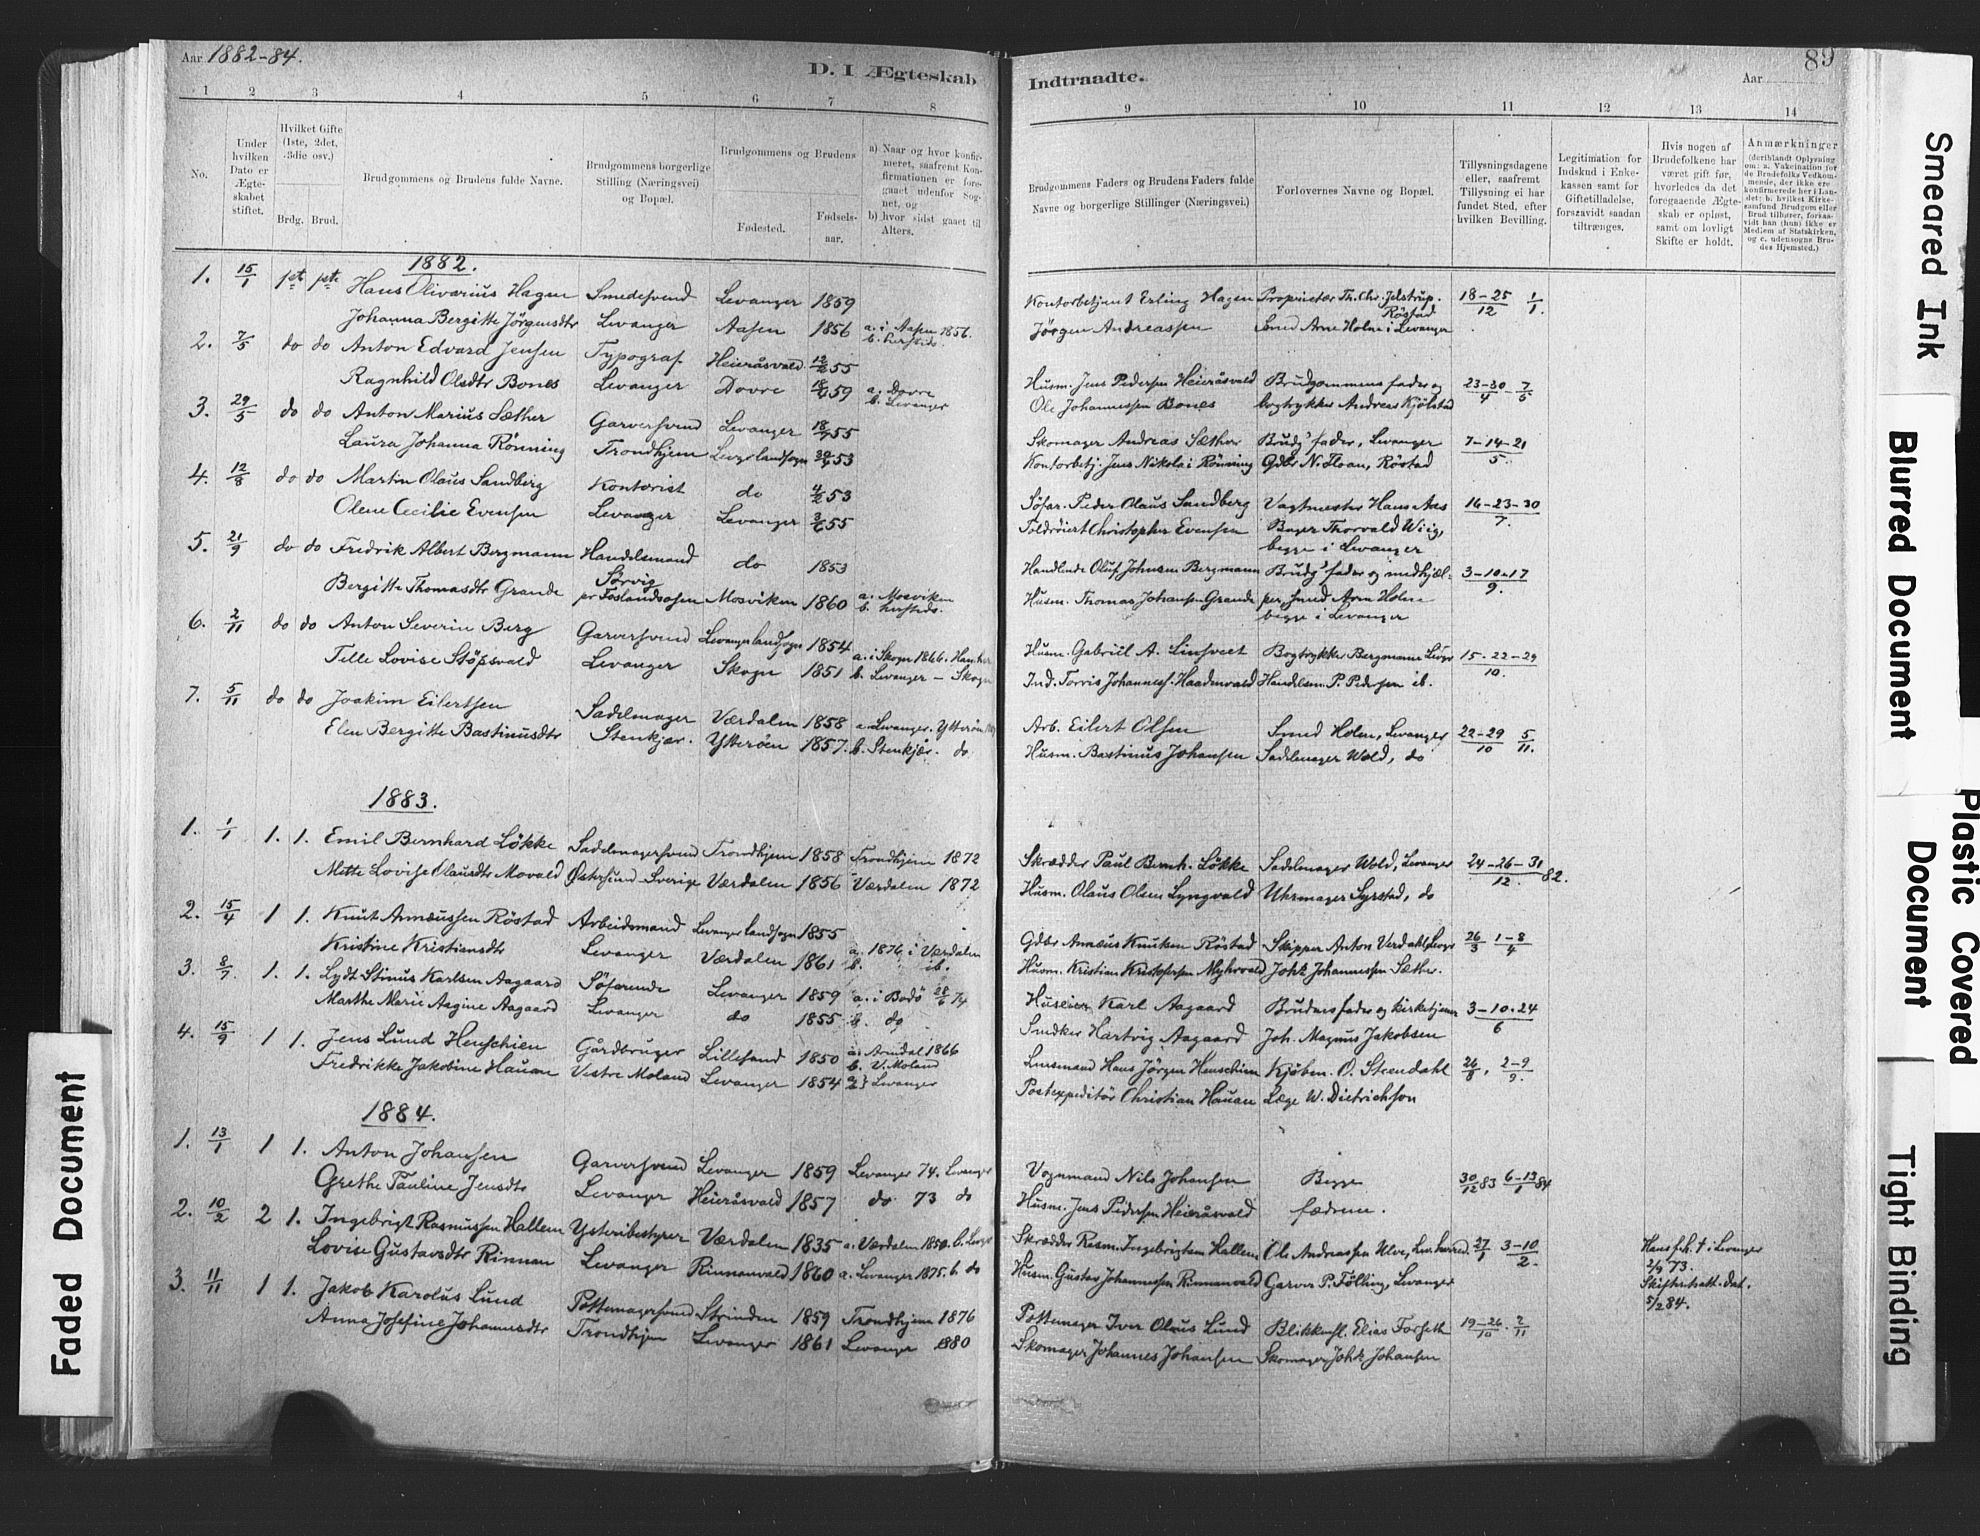 Aar 1882-84.
D. I Ægteskab
Indtraadte.
Aar
89
1 2 3 4 5 6 7 8
9 10 11 12 13 14
No.
Under hvilken Dato er Ægteskabet stiftet.
Hvilket Gifte (1ste, 2det, 3die osv.)
Brdg. Brud.
Brudgommens og Brudens fulde Navne.
Brudgommens borgerlige Stilling (Næringsvei) og Bopæl.
Brudgommens og Brudens
Fødested.
Fødselsaar.
a) Naar og hvor konfirmeret, saafremt Konfirmationen er foregaaet udenfor Sognet, og
b) hvor sidst gaaet til Alters.
Brudgommens Faders og Brudens Faders fulde Navne og borgerlige Stillinger (Næringsvei.)
Forlovernes Navne og Bopæl.
Tillysningsdagene eller, saafremt Tillysning ei har fundet Sted, efter hvilken Bevilling.
Legitimation for Indskud i Enkekassen samt for Giftetilladelse, forsaavidt saadan tiltrænges.
Hvis nogen af Brudefolkene har været gift før, hvorledes da det foregaaende Ægteskab er opløst, samt om lovligt Skifte er holdt.
Anmærkninger
(deriblandt Oplysning om: a. Vakcination for de Brudefolks Vedkommende, der ikke ere konfirmerede her i Landet; b. hvilket Kirkesamfund Brudgom eller Brud tilhører, forsaavidt han (hun) ikke er Medlem af Statskirken, og c. udensogns Brudes Hjemsted.)
1882.
1. 15/1 1ste 1ste Hans Olivarius Hagen Smedesvend Levanger 1859 Kontorbetjent Erling Hagen Proprietær Th. Chr. Jelstrup. Röstad 18-25/12 1/1.
Johanna Bergitte Jörgensdtr Levanger Aasen 1856 a. i Aasen 1856. b. hersteds. Jörgen Andreassen Smed Arne Holm i Levanger
2. 7/5 do do Anton Edvard Jensen Typograf Heieråsvald 12/2 55 Husm. Jens Pedersen Heieråsvald Brudgommens fader og 23-30/4 - 7/5
Ragnhild Olsdtr Bones Levanger Dovre 59 a. Dovre b. Levanger Ole Johannessen Bones bogtrykker Andreas Kjölstad
3. 29/5 do do Anton Marius Sæther Garversvend Levanger 55 Skomager Andreas Sæther Brudg's fader, Levanger 7-14-21/5.
Laura Johanna Rönning Trondhjem Levgr landsogn 53 Kontorbetj. Jens Nikolai Rönning Gdbr N. Floan, Röstad
4. 12/8 do do Martin Olaus Sandberg Kontorist do 4/2 53 Söfar. Peder Olaus Sandberg Vagtmester Hans Aas 16-23-30/7.
Olene Cecilie Evensen Levanger Levanger 55 Toldröiert Christopher Evensen Bager Thorvald Wiig, begge i Levanger
5. 21/9 do do Fredrik Albert Bergmann Handelsmand do 1853 Handlende Oluf Johnsen Bergmann Brudg's fader og medhjæl- 3-10-17/9.
Bergitte Thomasdtr Grande Sörvig pr Foslandsosen Mosviken 1860 a. Mosviken b. hersteds. Husm. Thomas Johans. Grande per, smed Arne Holm begge i Levanger
6. 2/11 do do Anton Severin Berg Garversvend Levanger landsogn 1854 Husm. Gabriel A. Linsveet Bogtrykker Bergmann Levgr 15-22-29/10.
Telle Lovise Stöpsvald Levanger Skogn 1851 a. i Skogn 1866. b. Levanger - Skogn Ind. Torris Johanness. Haadenvald Handelsm. P. Pedersen ib.
7. 5/11 do do Joakim Eilertsen Sadelmager Værdalen 1858 a. Levanger. Ytterön Arb. Eilert Olsen Smed Holm, Levanger 22-29/10 5/11.
Elen Bergitte Bastinusdtr Stenkjær. Ytterøen 1857. b. Stenkjær. do Husm. Bastinus Johansen Sadelmager Wold, do
1883.
1. 1/1 1. 1. Emil Bernhard Lökke Sadelmagersvend Trondhjem 1858 Trondhjem 1872 Skrædder Paul Bernh. Lökke Sadelmager Wold, Levanger 24-26-31/12. 82.
Mette Lovise Olausdtr Movald Østersund Sverige Værdalen 1856 Værdalen 1872 Husm. Olaus Olsen Lyngvald Uhrmager Syrstad, do
2. 15/4 1 1. Knut Annæussen Röstad Arbeidsmand Levanger landsogn 1855 Gdbr Annæus Knutsen Röstad Skipper Anton Verdahl, Levgr 26/3 1-8/4
Kristine Kristiansdtr Levanger Værdalen 1861 a. 1876 i Værdalen b. ib. Husm. Kristian Kristofersen Myhrvald Johs. Johannessen Sæther.
3. 8/7 1. 1. Lydt Stinus Karlsen Aagaard Söfarende Levanger 1859 a. i Bodö 28/6 74 Huseier Karl Aagaard Brudens fader og kirketjener 3-10-24/6
Marthe Marie Aagine Aagaard Levanger do 1855 b. do Snedker Hartvig Aagaard Joh. Magnus Jakobsen
4. 15/9 1 1. Jens Lund Henschien Gårdbruger Lillesand 1850 a. Arndal 1866 b. V. Moland Lensmand Hans Jörgen Henschien Kjöbm. O. Steendahl 26/8, 2-9/9.
Fredrikke Jakobine Hauan Vestre Moland Levanger 1854 Levanger Postexpeditör Christian Hauan Læge W. Dietrichson
1884.
1. 13/1 1 1. Anton Johansen Garversvend Levanger 1859 Levanger 74. Levanger Vognmand Nils Johansen Begge 30/12 83 6-13/1 84
Grethe Pauline Jensdtr Levanger Heieråsvald 1857 do 73 do Husm. Jens Pedersen Heieråsvald fædrene.
2. 10/2 2 1. Ingebrigt Rasmussen Hallem Ysteribestyrer Værdalen 1835 a. Værdalen 1850. b. Levgr Skrædder Rasm. Ingebrigtsen Hallem Ole Andreassen Ulve, 27/1 3-10/2. Hans f.h. † i Levanger 2/9 73. Skifteratt. dat. 5/2 84.
Lovise Gustavsdtr Rinnan Levanger Rinnanvald 1860 a. Levanger 1875. b. do Husm. Gustav Johannessen Rinnanvald Garver P. Fölling, Levanger
3. 11/11 1 1. Jakob Karolus Lund Pottemagersvend Strinden 1859 Trondhjem 1876 Pottemager Iver Olaus Lund Blikkensl. Elias Forseth 19-26/10. 2/11
Anna Josefine Johannesdtr Trondhjem Levanger 1861 Levanger 1880 Skomager Johannes Johansen Skomager Johs. Johansen
Smeared Ink
Blurred Document
Plastic Covered Document
Tight Binding
Faded Document